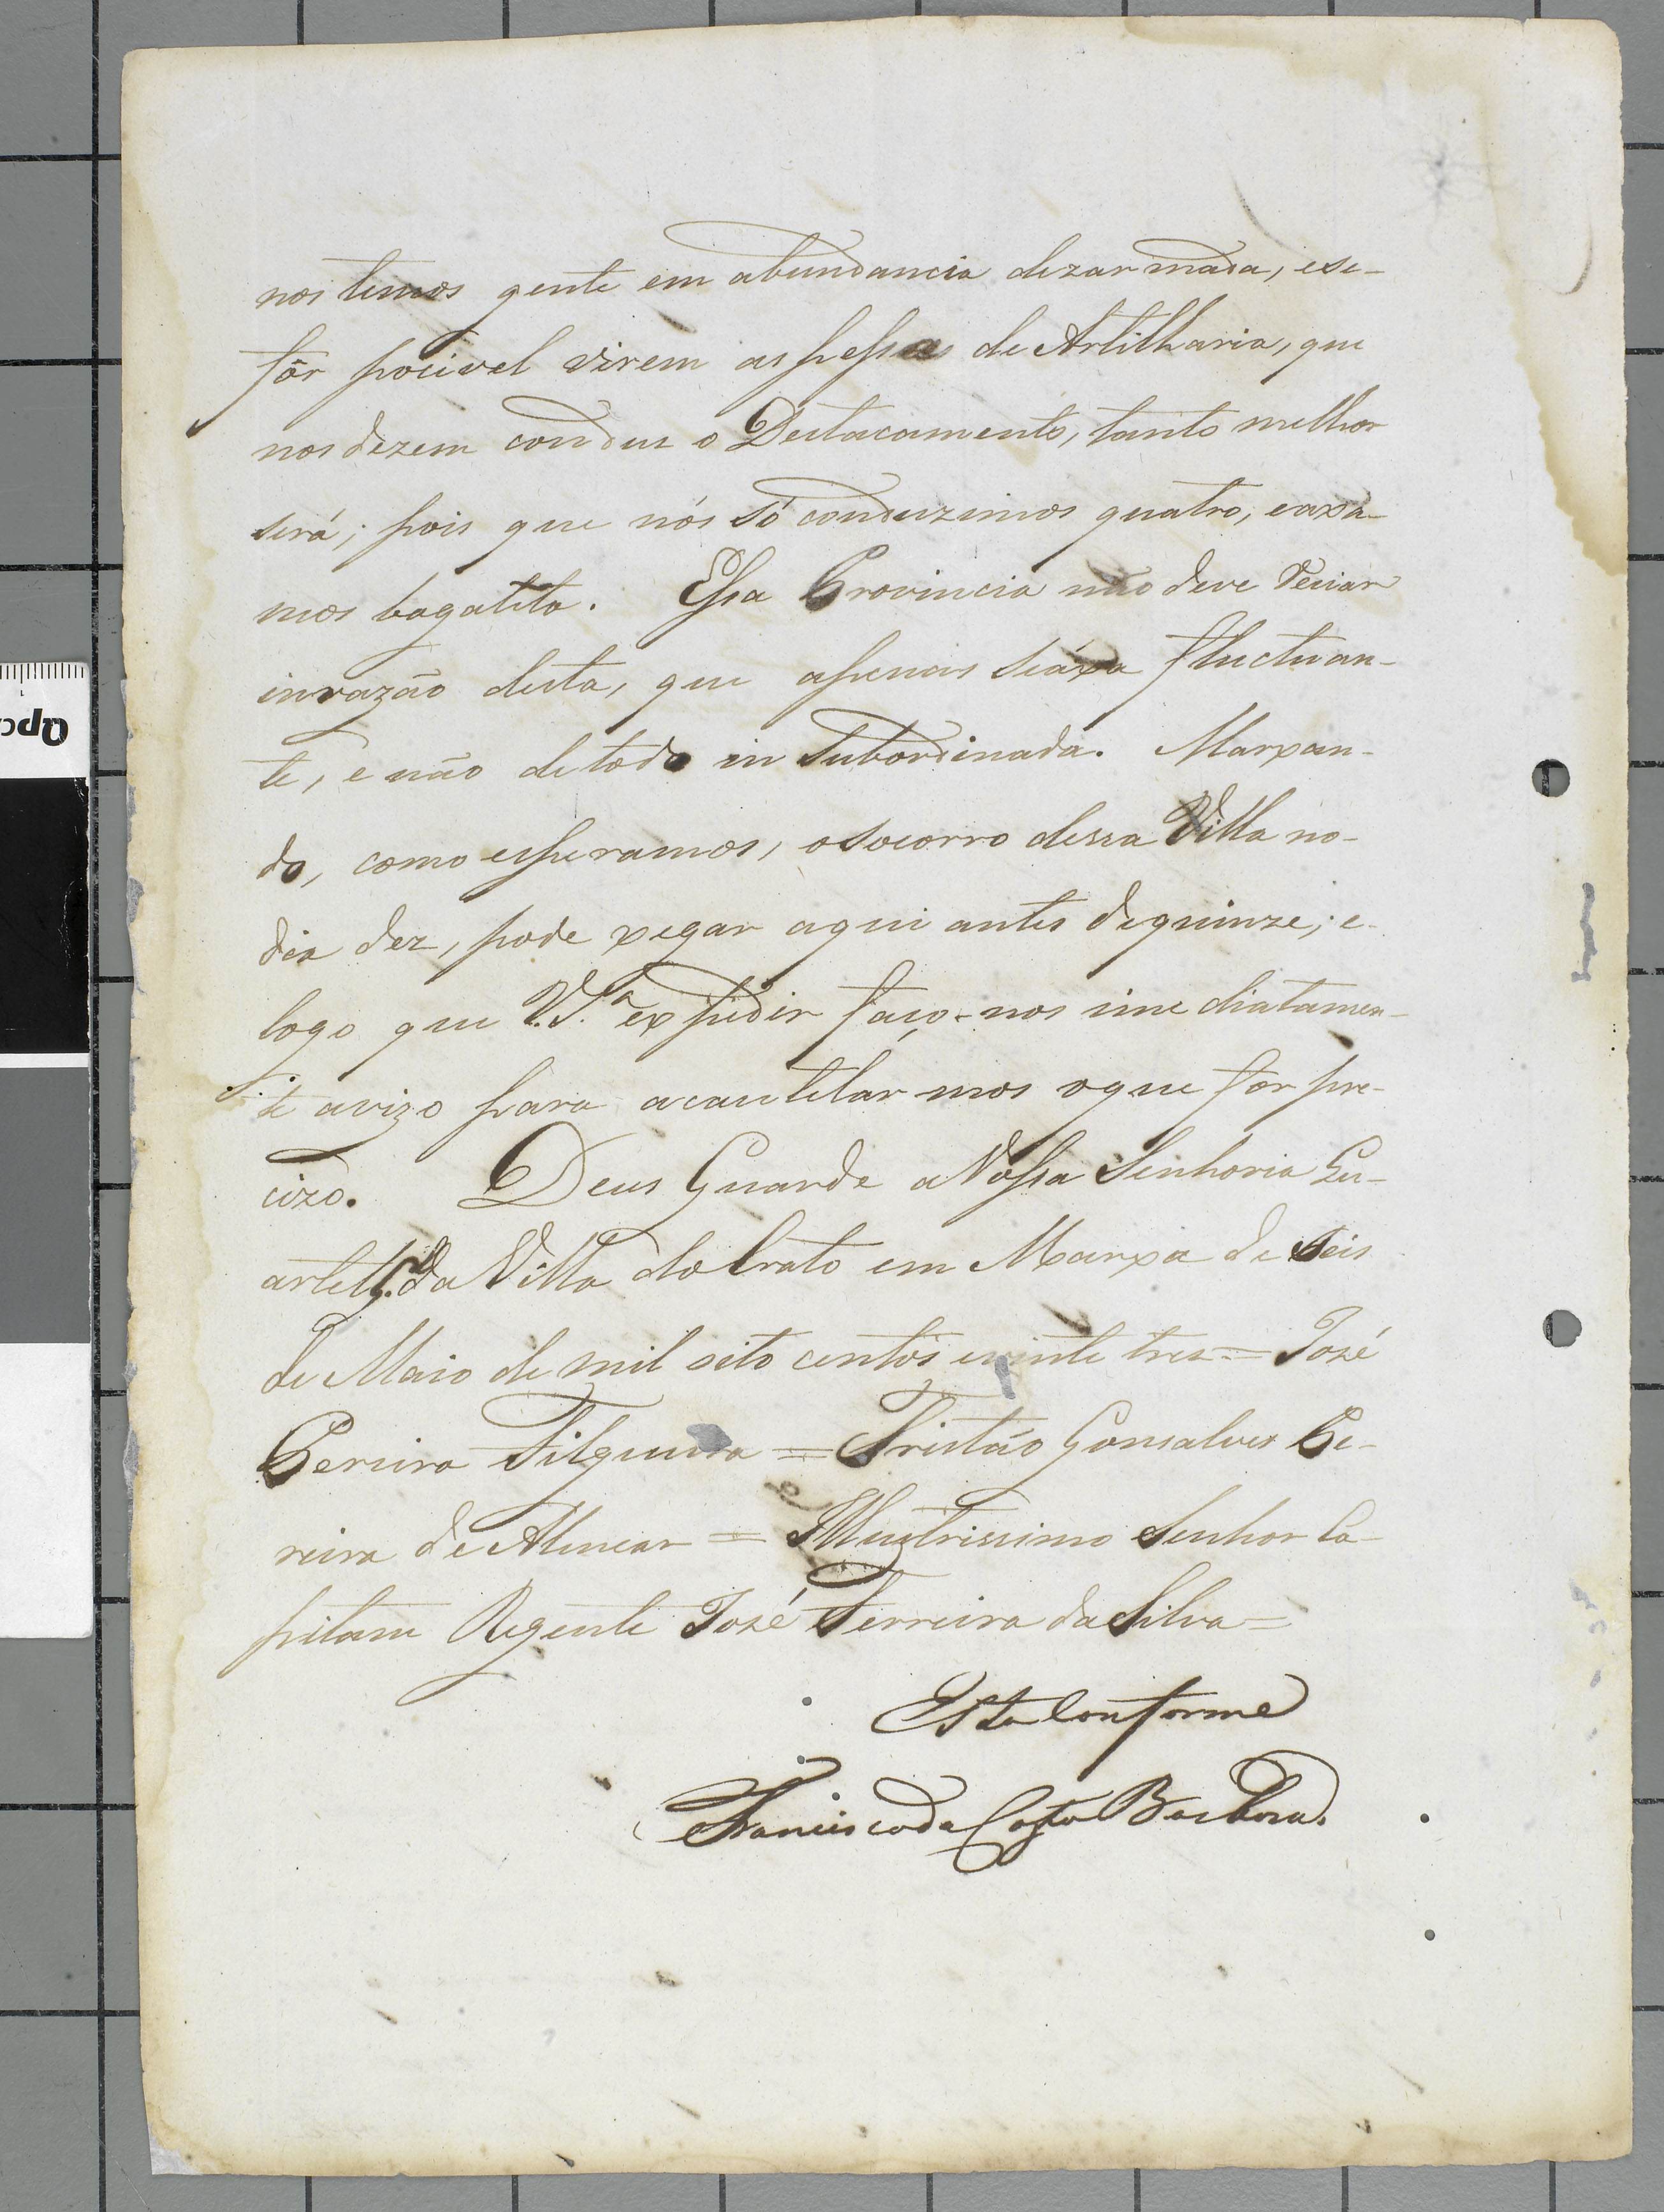 nos temos gente em abundancia dezarmada, ese-
fôr pocivel virem as pessas de Artilharia, que
nos dizem condus o Destacamento, tanto melhor
será; pois que nós só conduzimos quatro, eaxa-
mos bagatela. Essa Provincia não deve reciar
invazão desta, que apenas seáxa fluctuan-
te, e não detodo in subordinada. Marxan-
do, como esperamos, osocorro dessa Villa no-
dia dez, pode xegar aqui antes dequinze; e-
logo que V.S.ª expidir faça-nos imediatamen-
te avizo para acautelar mos oque for pre-
cizo. Deus Guarde aVossa Senhoria Qu-
artel G. da Villa do Crato em Marxa de seis
de Maio de mil oito centos evinte tres = José
Pereira Filgueira = Tristão Gonsalves Pe-
reira de Alencar = Illustrissimo Senhor Ca-
pitam Regente José Ferreira da Silva =
Esta Conforme
Francisco da Costa Barboza.